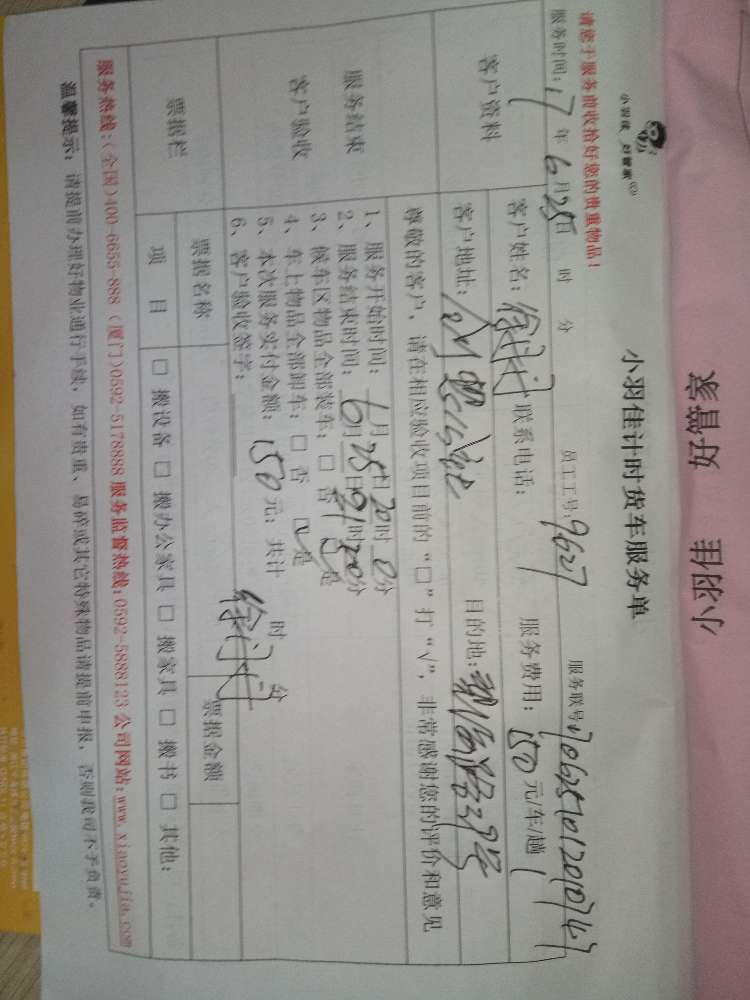 小羽佳 好管家
小羽佳 好管家
小羽佳计时货车服务单
请您于服务前收拾好您的贵重物品!
服务时间: 17 年 6 月 25 日 时 分 员工工号: 9627 服务联号:
客户资料
客户姓名: 徐 联系电话: 服务费用: 150 元/车/趟
客户地址: 目的地:
服务结束
客户验收
尊敬的客户, 请在相应验收项目前的“□”打“√”, 非常感谢您的评价和意见
1、服务开始时间: 6 月 25 日 20 时 0 分
2、服务结束时间: 6 月 25 日 21 时 20 分
3、候车区物品全部装车: □ 否 ☑ 是
4、车上物品全部卸车: □ 否 ☑ 是
5、本次服务实付金额: 150 元; 共计 时 分
6、客户验收签字: 徐
票据栏
票据名称 票据金额
项 目 □ 搬设备 □ 搬办公家具 □ 搬家具 □ 搬书 □ 其他:
服务热线:(全国)400-6655-888 (厦门)0592-5178888 服务监督热线:0592-5888123 公司网站:www.xiaoyujia.com
温馨提示: 请提前办理好物业通行手续, 如有贵重、易碎或其它特殊物品请提前申报, 否则我司不予负责。